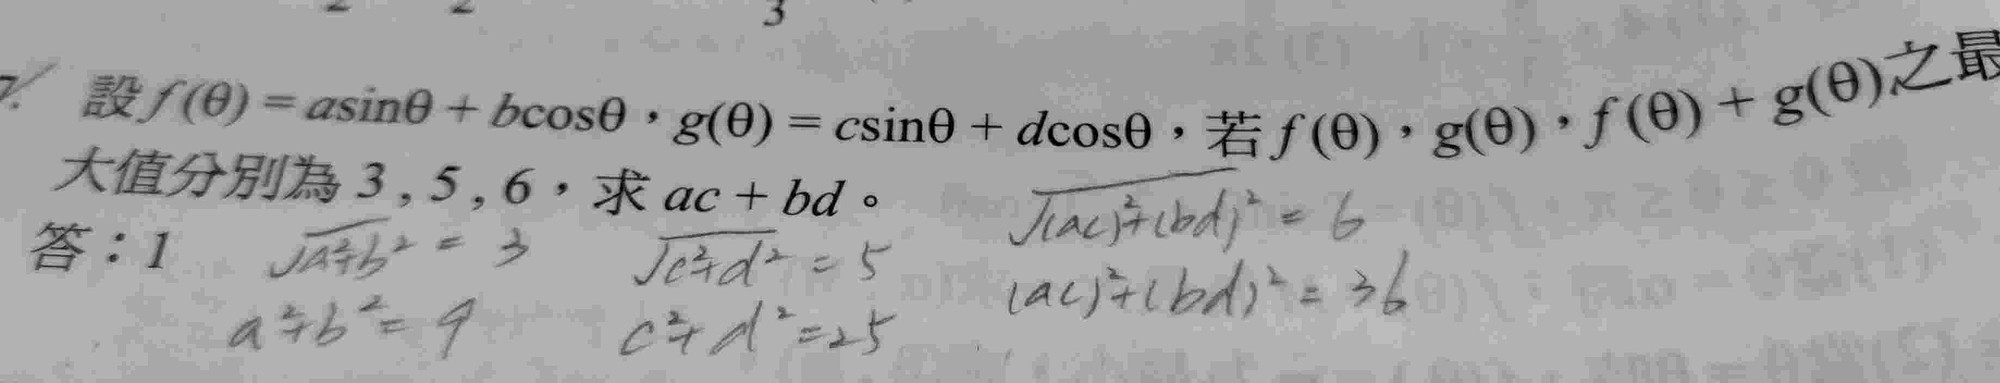 3
7. 設f(θ) = asinθ + bcosθ，g(θ) = csinθ + dcosθ，若f(θ)，g(θ)，f(θ) + g(θ)之最
大值分別為 3 , 5 , 6，求 ac + bd。
答：1
√a²+b² = 3 √c²+d² = 5 √(ac)²+(bd)² = 6
a²+b² = 9 c²+d² = 25 (ac)²+(bd)² = 36